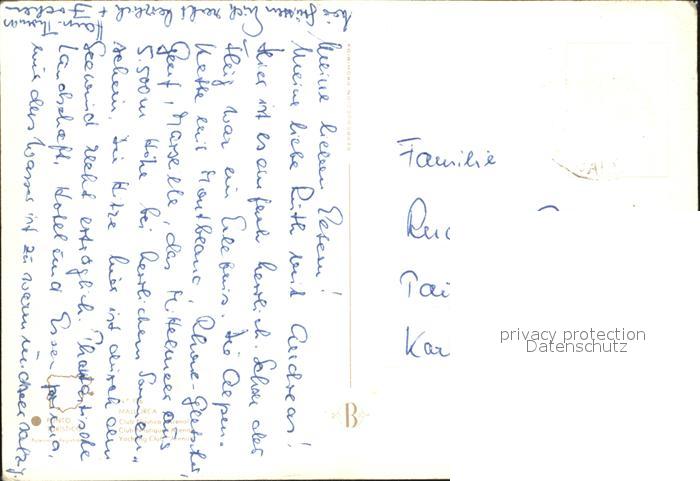 Meine lieben Eltern!
Meine liebe Ruth mit Andreas!
Hier ist es einfach herrlich. Schon der
Flug war ein Erlebnis. Die Alpen-
kette mit Montblanc, Rhone-Gletscher,
Genf, Marseille, das Mittelmeer aus
5.500m Höhe bei herrlichem Sonnen-
schein. Die Hitze hier ist durch den
Seewind recht erträglich. Phantastische
Landschaft, Hotel und Essen prima,
nur das Wasser ist zu warm und sehr salzig.
grüssen Euch recht herzlich
Thomas
Familie
MALLORCA
B
privacy protection
Datenschutz